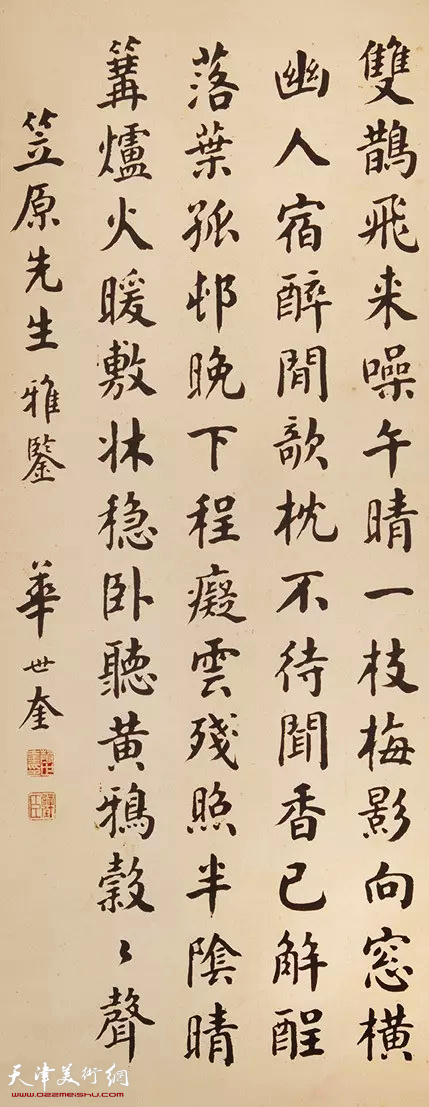 雙鵲飛来噪午晴一枝梅影向窓橫
幽人宿醉閒欹枕不待聞香已解酲
落葉孤邨晚下程癡雲殘照半陰晴
篝爐火暖敷牀穏卧聽黄鴉穀〻聲
笠原先生雅鑒 華世奎
天津美術網
www.022meishu.com